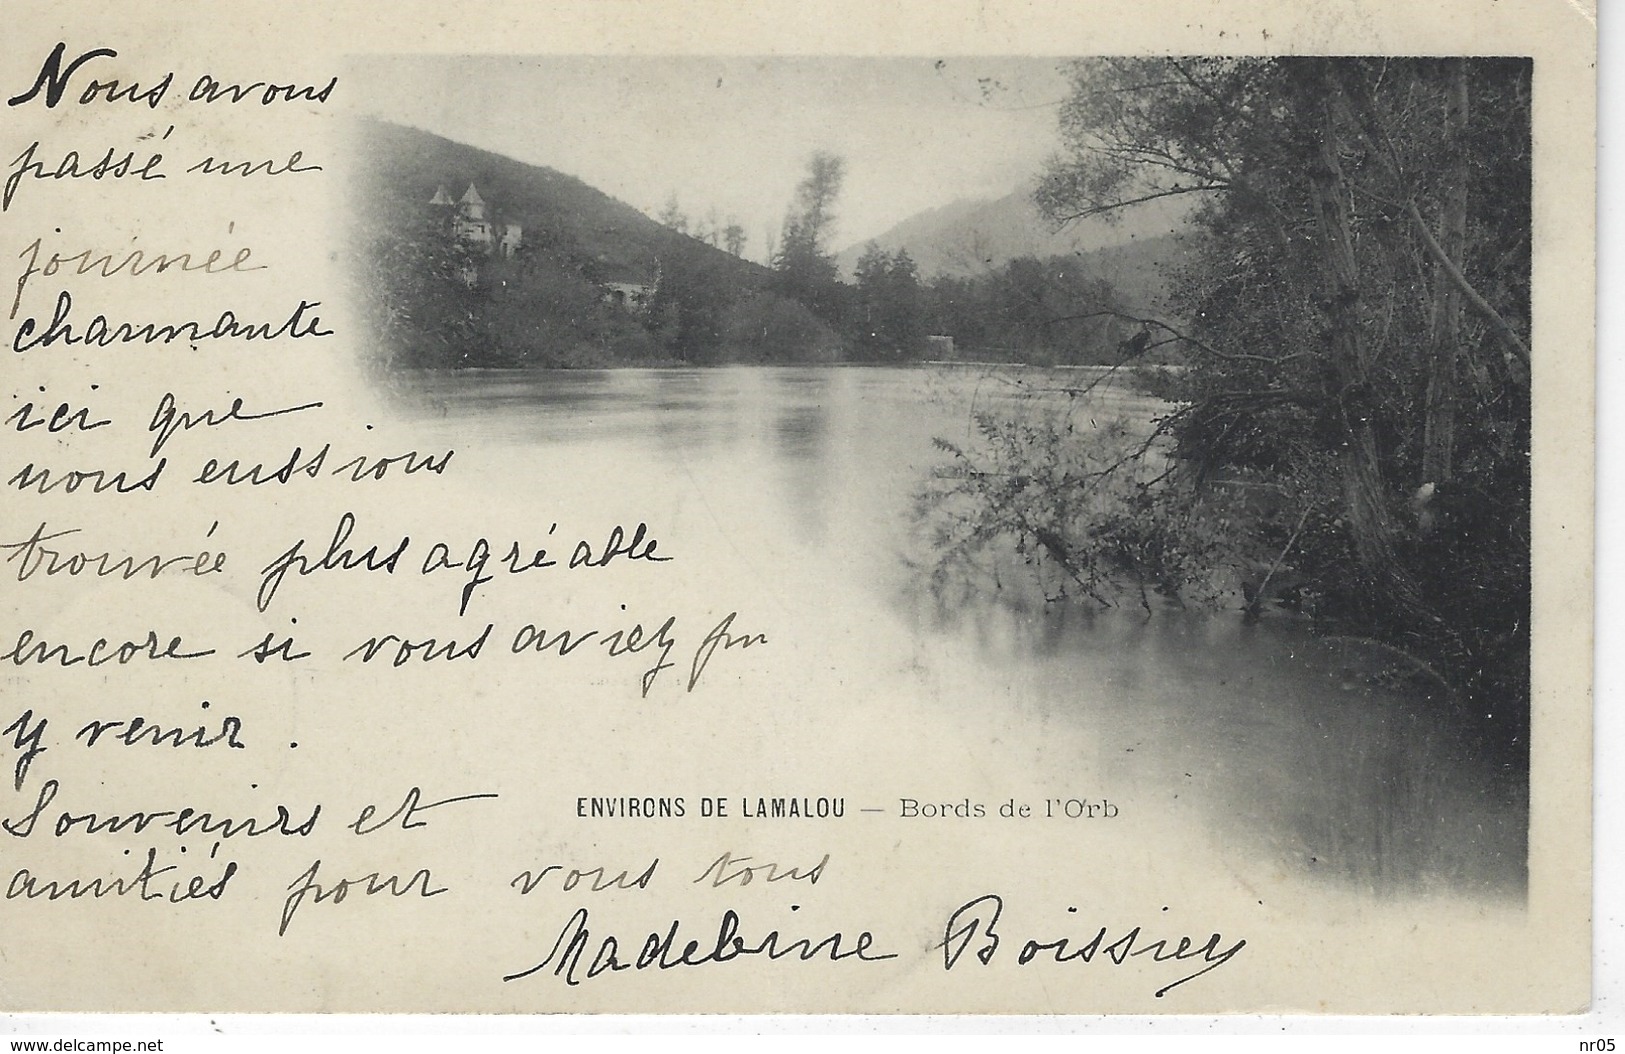 Nous avons
passé une
journée
charmante
ici que
nous eussions
trouvée plus agréable
encore si vous aviez pu
y venir.
Souvenirs et
amitiés pour vous tous
Madeleine Boissier
ENVIRONS DE LAMALOU — Bords de l'Orb
www.delcampe.net
nr05